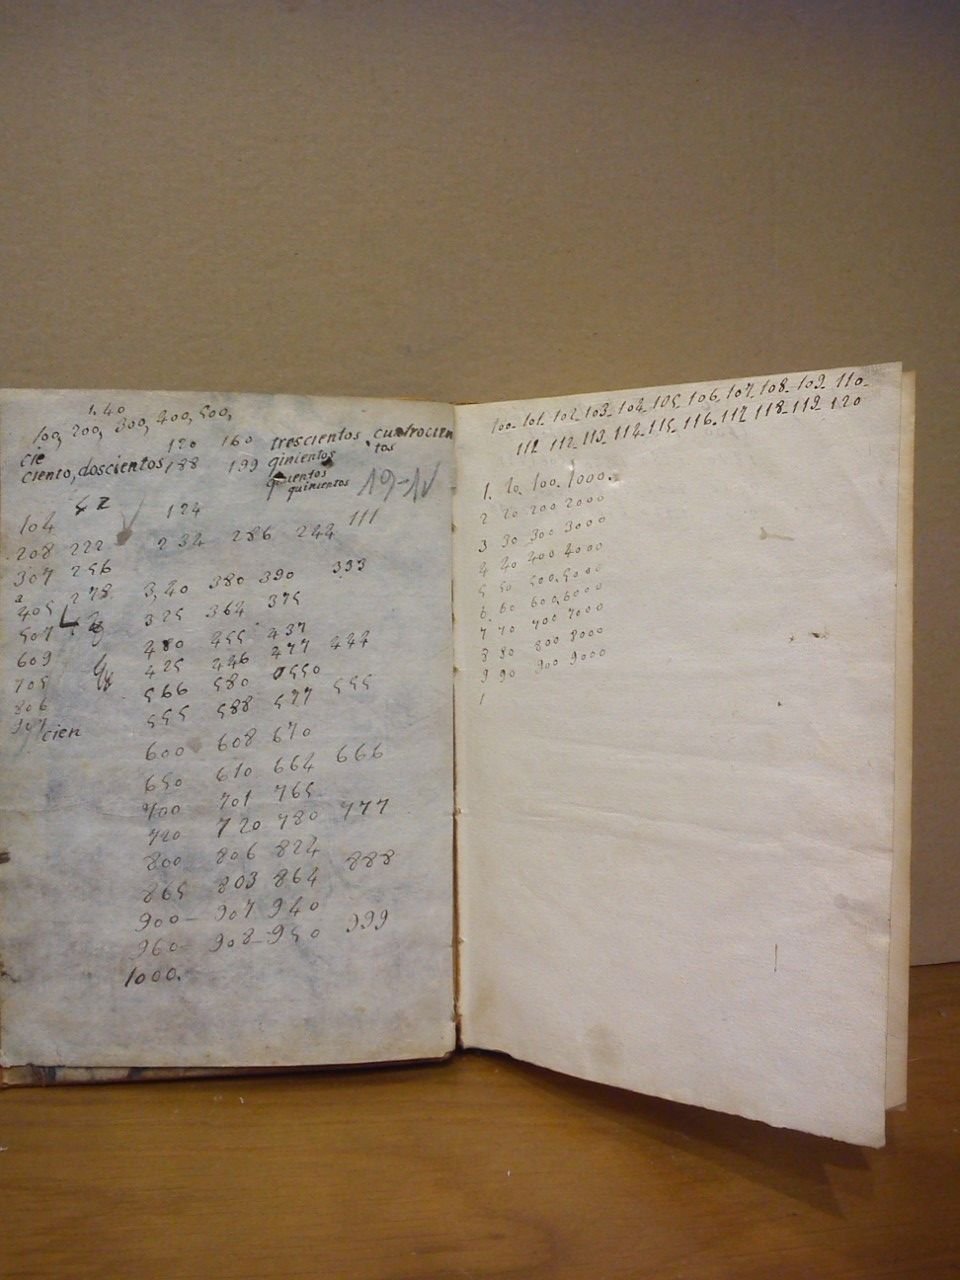 1,40
100, 200, 300, 400, 500,
120 160 trescientos, cuatrocien
cie
tos
ciento, doscientos, 188 199 qinientos
quientos
quinientos 19-IV
42
104 124
208 222 234 286 244 111
307 256
405 278 3,40 380 390 333
507 325 364 375
609 480 455 437
705 425 446 477 444
806 566 580 0550
907 555 588 577 555
cien
600 608 670
650 610 664 666
700 701 765
720 720 780 777
800 806 824
865 803 864 888
900- 907 940
960- 908-950 999
1000.
100- 101- 102- 103- 104- 105- 106- 107- 108- 109- 110-
112 112- 113- 114-115- 116- 117 118-119 120
1. 10. 100. 1000.
2 20 200 2000
3 30 300 3000
4 40 400 4000
5 50 500,5000
6 60 600,6000
7 70 700 7000
8 80 800 8000
9 90 900 9000
1